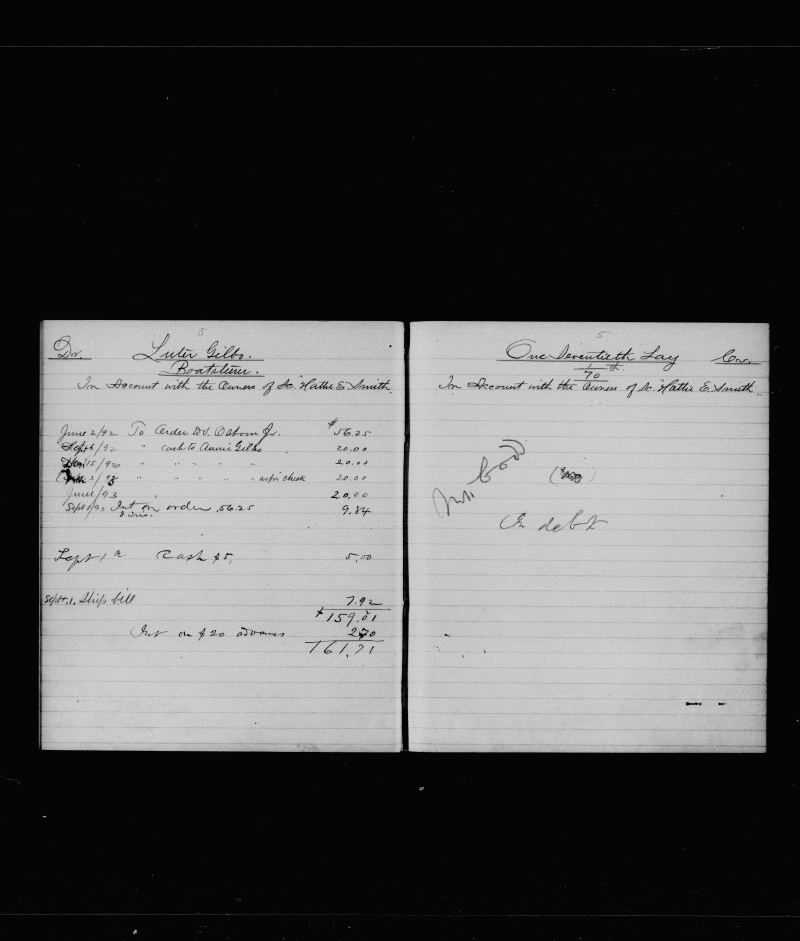 5
Dr. Luter Gilbo.
Boatsteerer.
In Account with the Owners of Sc. "Hattie E. Smith.
June 2/92 To Order W.S. Osborn Jr. $56.25
Sept 6/92 " cash to Annie Gilbo 20.00
15/92 " " " " 20.00
3/93 " " " " as pr check 20.00
June 1/93 20.00
Sept 1/93 Int on order 56.25 9.84
Sept 1st Cash $5, 5.00
Sept. 1. Ship bill 7.92
159.01
Int on $20 advances 2.70
161.71
5
One Seventieth Lay Cr.
1/70 th
In Account with the Owners of Sc. "Hattie E. Smith.
In debt